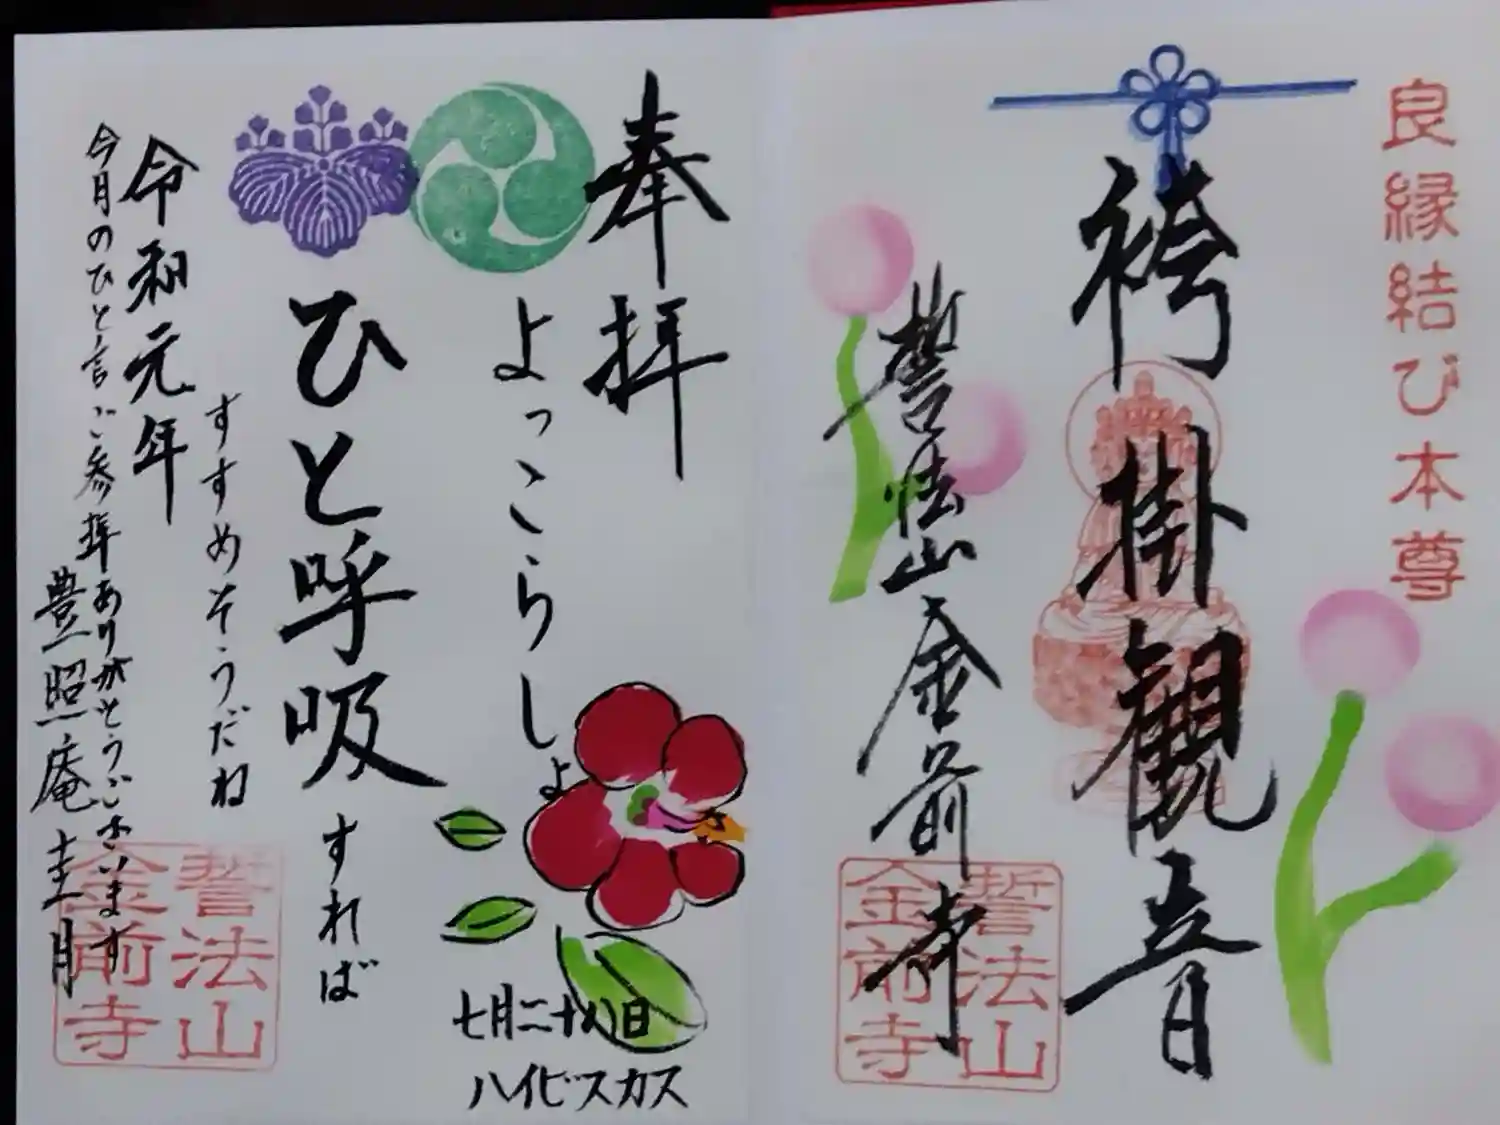 良縁結び本尊
袴掛観音
誓法山金前寺
誓法山
金前寺
奉拝
よっこらしょ
ひと呼吸すれば
すすめそうだね
七月二十八日
ハイビスカス
令和元年
今月のひと言ご参拝ありがとうございます
豊照庵圭月
誓法山
金前寺